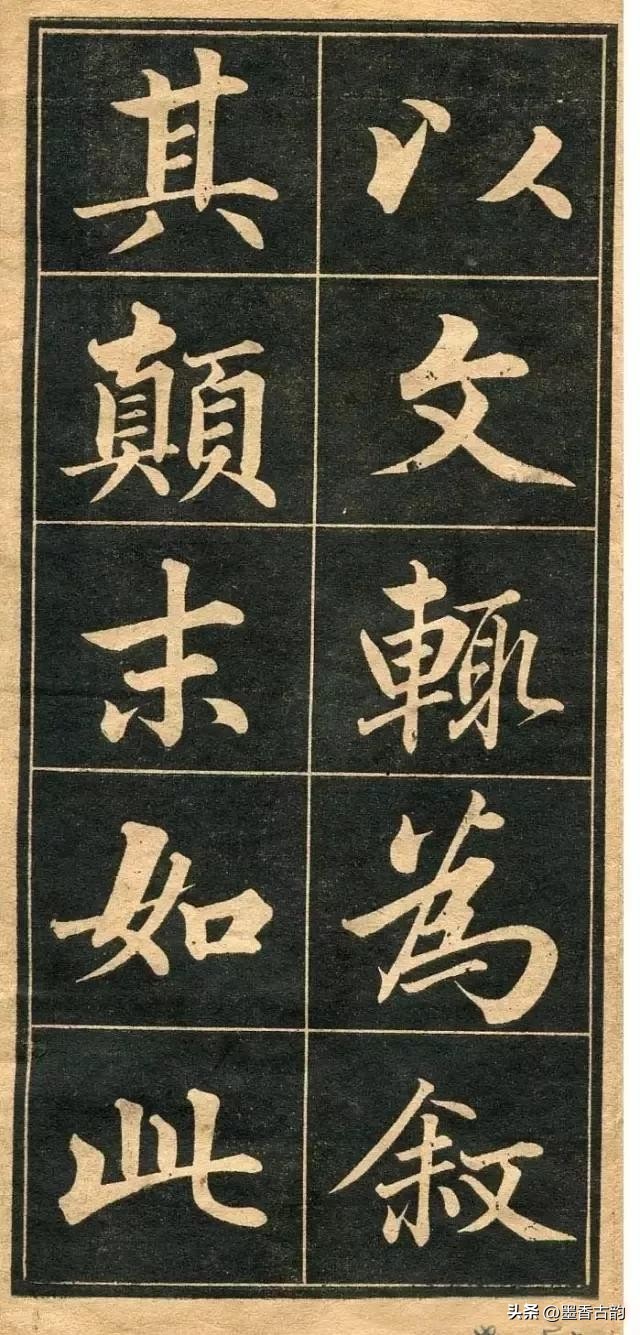 以文輙為叙
其顛末如此
头条 @墨香古韵